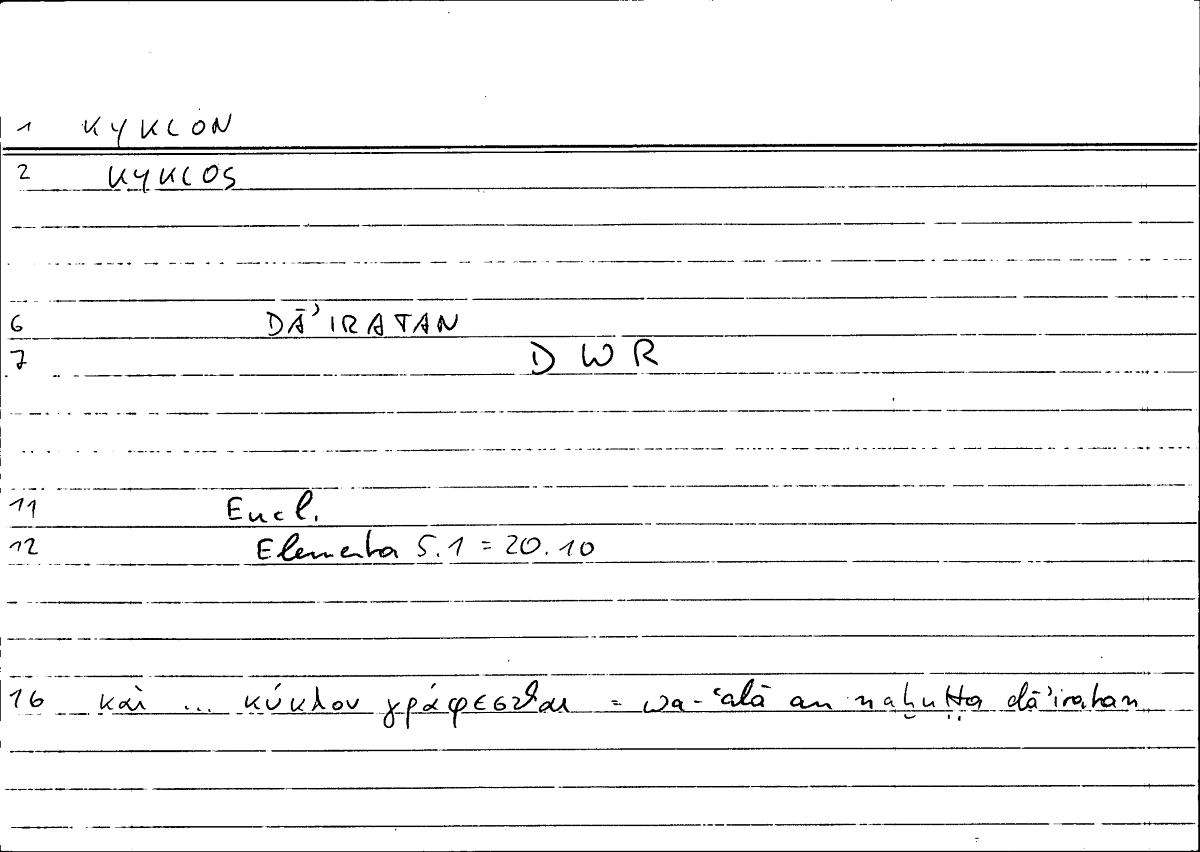 1 KYKLON
2 KYKLOS
6 DĀʾIRATAN
7 D W R
11 Eucl.
12 Elementa 5.1 = 20.10
16 καὶ ... κύκλον γράφεσθαι = wa-ʿalā an naḫuṭṭa dāʾiratan